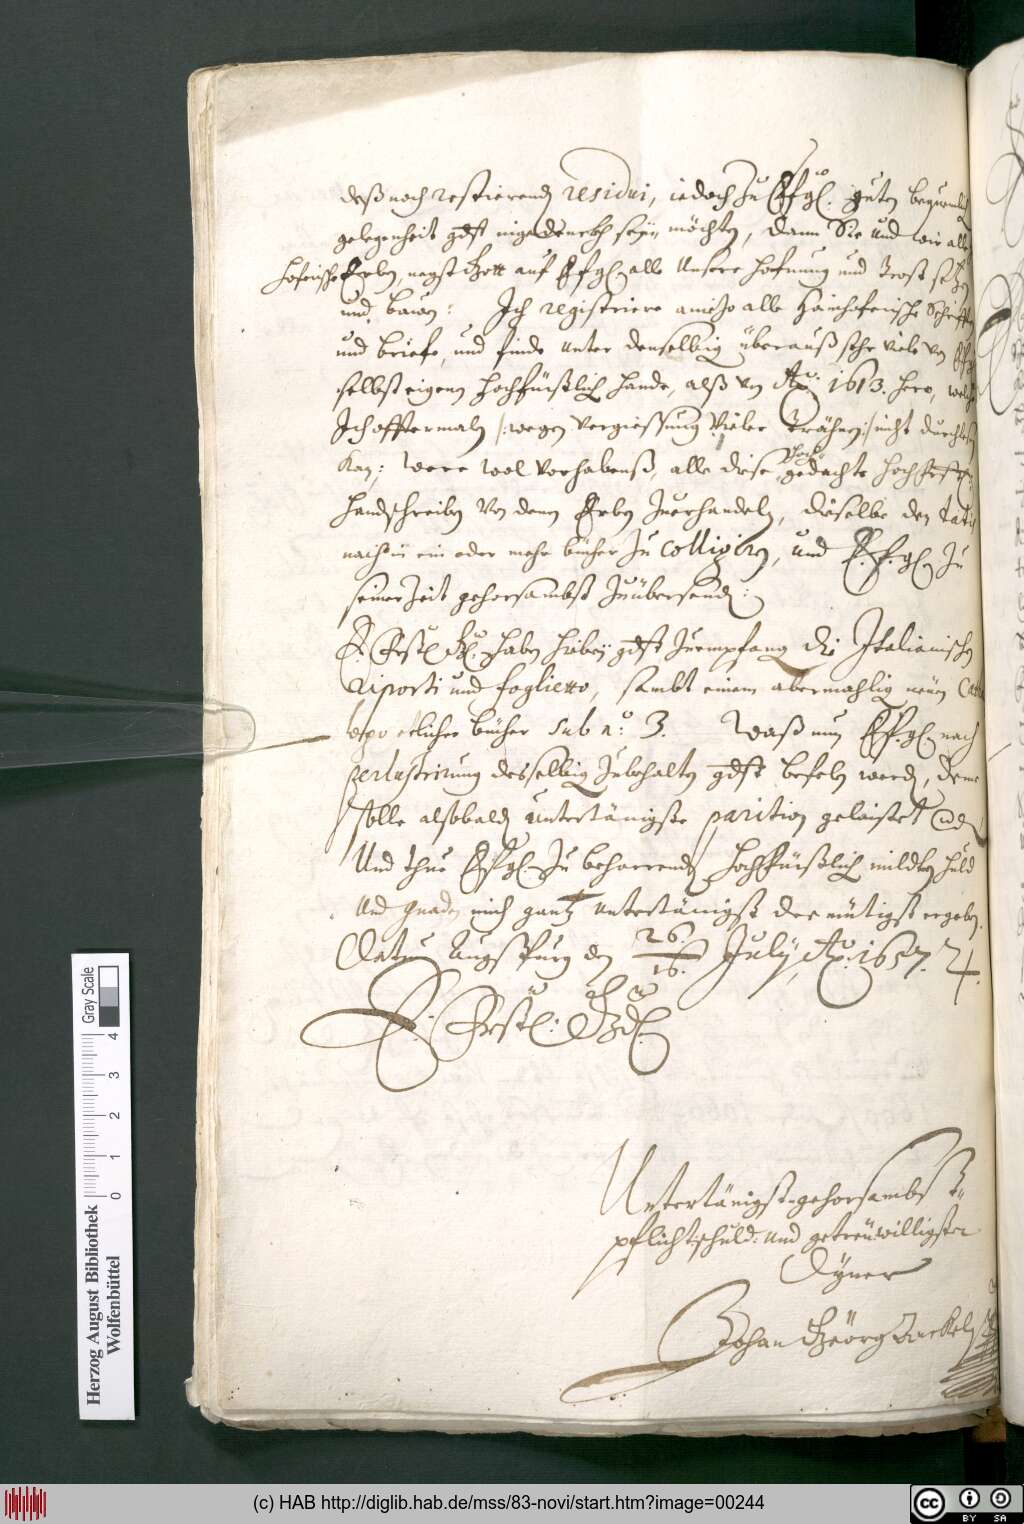 deß noch restierenden residui, iedoch zu E fgl. guten bequemlich
gelegenheit gdst ingedenckh sein möchten, dann Sie und wir alle
Hoferische Erben, negst Gott auf E fgl. alle Unsere hofnung und Trost setzen
und bawen: Ich registriere anietzo alle Hainhoferische Schrifften
und briefe, und finde unter denselbig überauß sehr viele von E fgl
selbst eigenen hochfürstlich hande, alß von Ao. 1613. hero, welche
Ich offtermaln /: wegen vergiessung vieler Trähnen :/ nicht durchlesen
kan; Were wol vorhabenß, alle diese hoch gedachte hochfrstl.
Handschreiben von denn Erben zuerhandeln, dieselbe den datis
nach in ein oder mehr bücher zu colligirn, und E. f. gl. zu
seiner Zeit gehorsambst zuübersenden:
E. Frstl. Gl. haben hiebey gdst zuempfang die Italianischen
riporti und foglietto, sambt einem abermahlig neüen Cata
logo etlicher bücher sub no. 3. Waß nun E f. gl. nach
perlustrirung desselbig zubehalten gdst befehlen werden, deme
solle alsobalden untertänigste parition gelaistet werden
Und thue E fgl. zu beharrenden hochfürstlich milden huld
und gnaden mich gantz untertänigst demütigst ergeben.
Datum Augspurg den 26./16. July Ao. 1657.
E. Frstl. Gd.
Untertänigst-gehorsambst-
pflichtschuld: und getreüwilligster
Dyner
Johan Geörg Anckel
Herzog August Bibliothek
Wolfenbüttel
0 1 2 3 4
Gray Scale
(c) HAB http://diglib.hab.de/mss/83-novi/start.htm?image=00244
cc BY SA